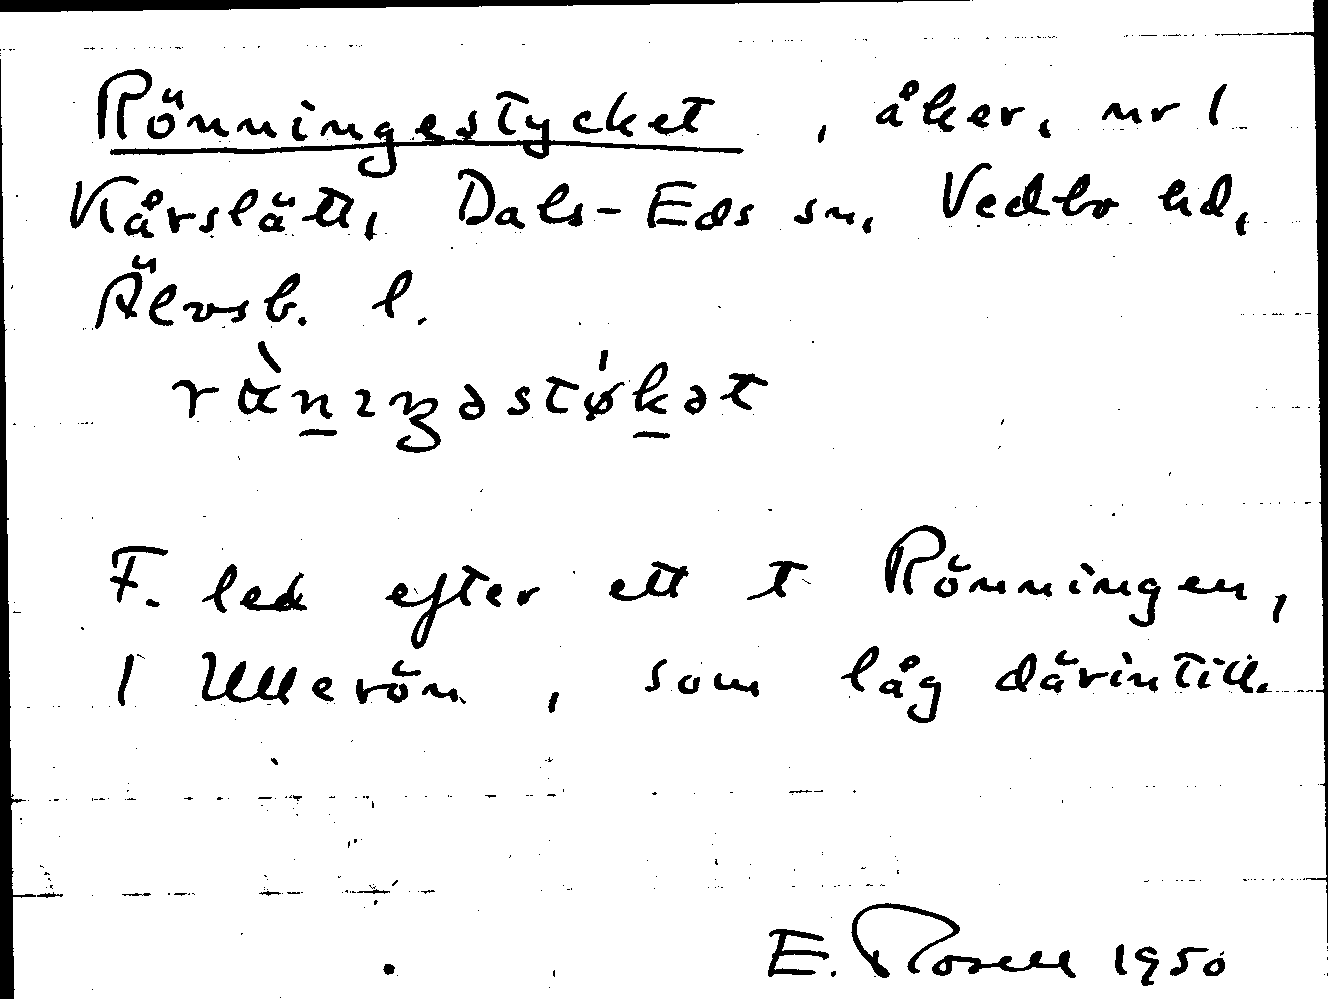 Rönningestycket, åker, nr 1
Kårslätt, Dals-Eds sn, Vedbo hd,
Älvsb. l.
rὰn̲ıŋəstǿk̲ət
F. led efter ett t Rönningen,
1 Ullerön, som låg därintill.
E. Rosell 1950